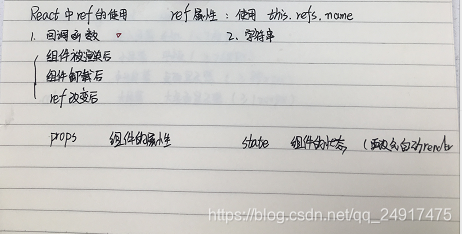 React中ref的使用 ref属性：使用 this.refs.name
1. 回调函数 2. 字符串
组件被渲染后
组件卸载后
ref改变后
props 组件的属性 state 组件的状态 自动render
https://blog.csdn.net/qq_24917475